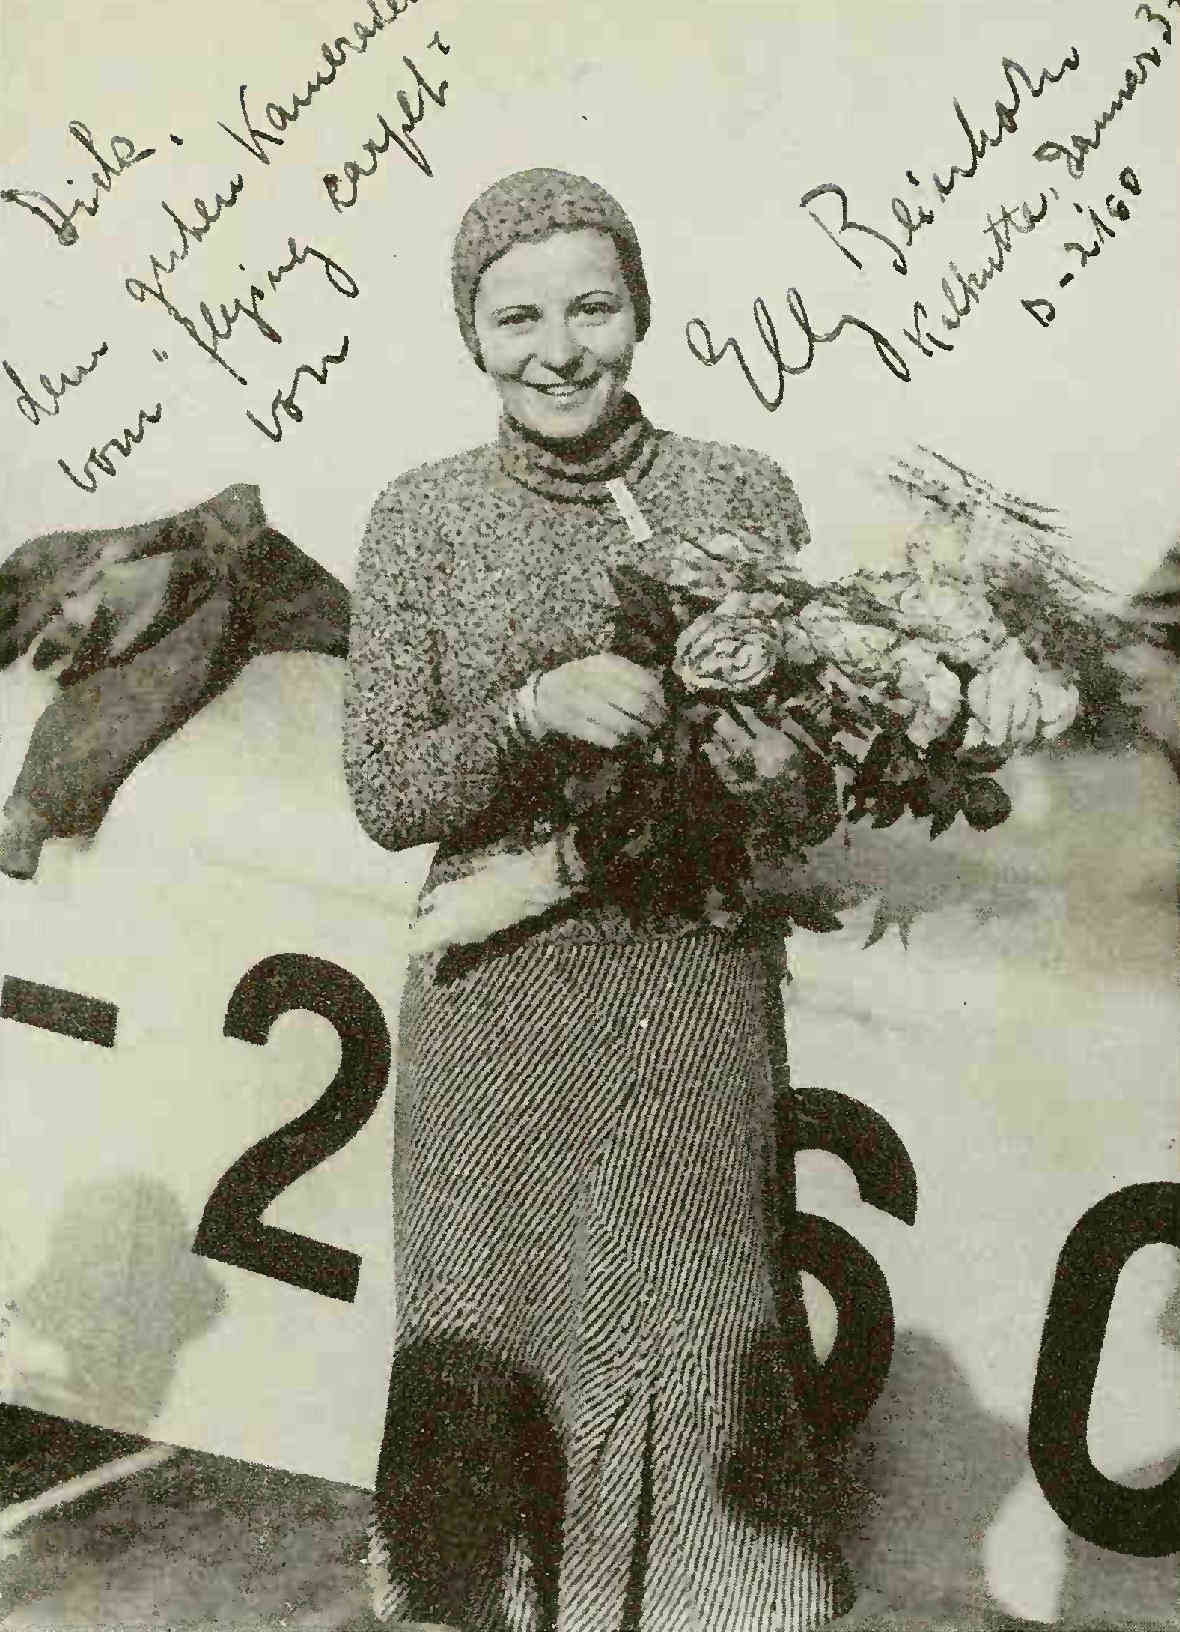 Dick.
dem guten Kameraden
vom "flying carpet"
von
Elly Beinhorn
Kalkutta, Januar 3
D-2160
-2 60